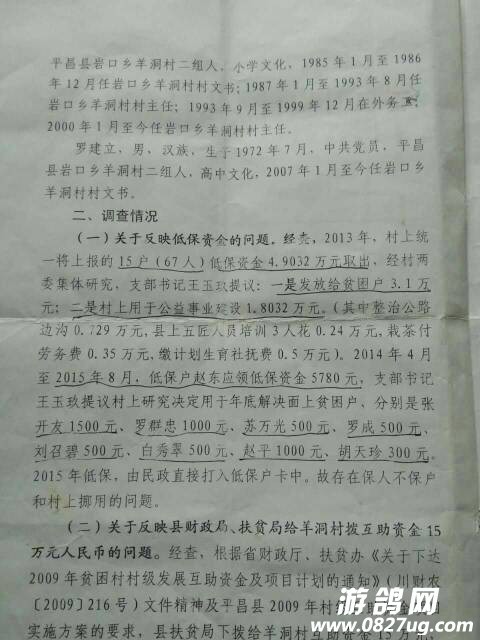 平昌县岩口乡羊洞村二组人，小学文化，1985年1月至1986
年12月任岩口乡羊洞村文书；1987年1月至1993年8月任
岩口乡羊洞村村主任；1993年9月至1999年12月在外务工；
2000年1月至今任岩口乡羊洞村村主任。
罗建立，男、汉族，生于1972年7月，中共党员，平昌
县岩口乡羊洞村二组人，高中文化，2007年1月至今任岩口乡
羊洞村村文书。
二、调查情况
（一）关于反映低保资金的问题。经查，2013年，村上统
一将上报的15户（67人）低保资金4.9032万元取出，经村两
委集体研究，支部书记王玉玖提议：一是发放给贫困户3.1万
元；二是村上用于公益事业建设1.8032万元。（其中整治公路
边沟0.729万元，县上五匠人员培训3人花0.24万元，栽茶付
劳务费0.35万元，缴计划生育社抚费0.5万元）。2014年4月
至2015年8月，低保户赵东应领低保资金5780元，支部书记
王玉玖提议村上研究决定用于年底解决面上贫困户、分别是张
开友1500元、罗群忠1000元、苏万光500元、罗成500元、
刘召碧500元、白秀翠500元、赵平1000元、胡天珍300元。
2015年低保，由民政直接打入低保户卡中。故存在保人不保户
和村上挪用的问题。
（二）关于反映县财政局、扶贫局给羊洞村拨互助资金15
万元人民币的问题。经查，根据省财政厅、扶贫办《关于下达
2009年贫困村村级发展互助资金及项目计划的通知》（川财农
〔2009〕216号）文件精神及平昌县2009年村
实施方案的要求，县扶贫局下拨给羊洞村互助
游鸽网
www.0827ug.com